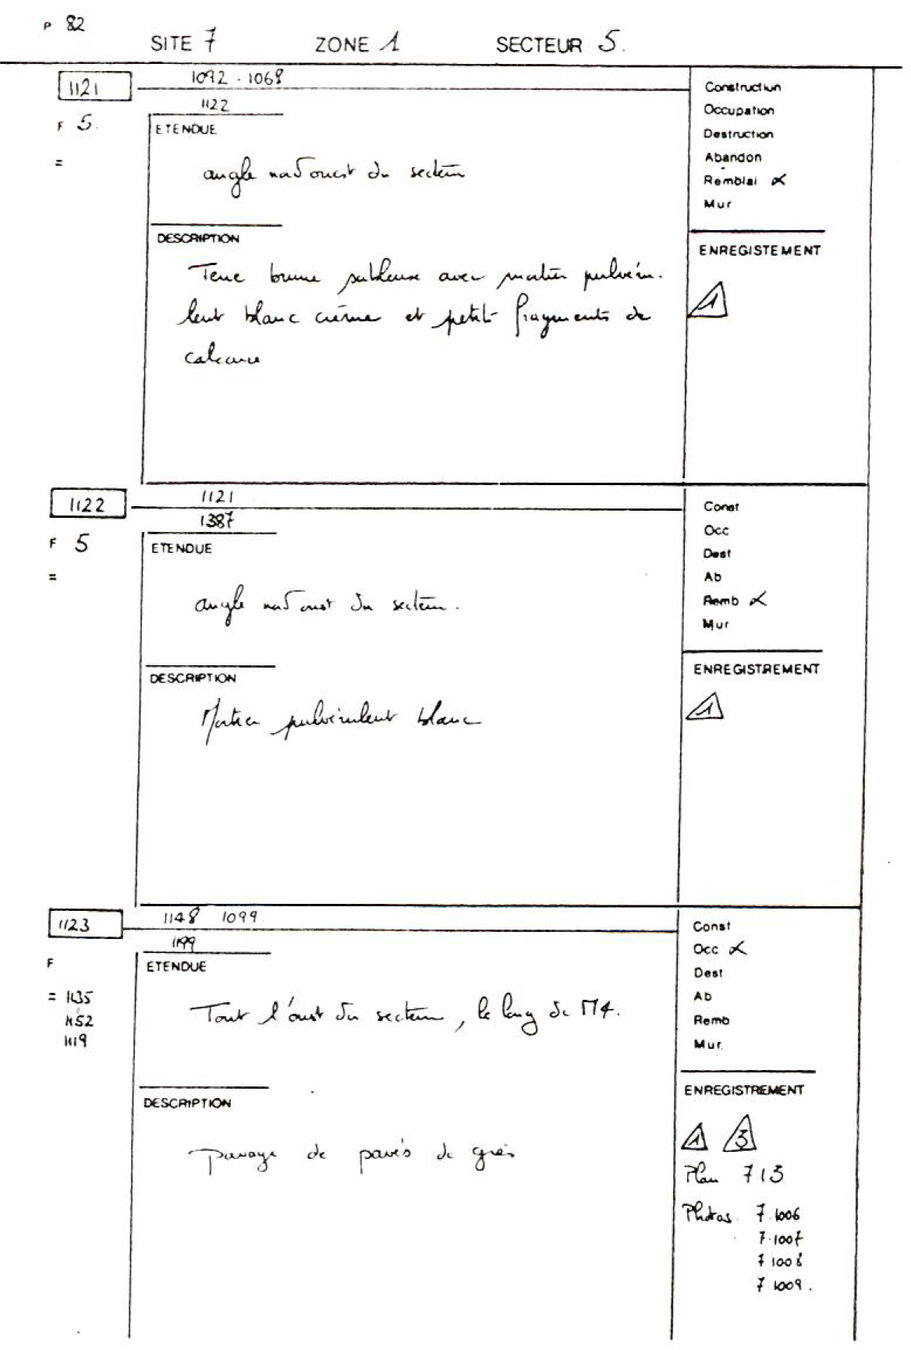 P 82
SITE 7 ZONE 1 SECTEUR 5.
1121
1092 - 1068
1122
F 5.
=
ETENDUE
angle nord ouest du secteur
DESCRIPTION
Terre brune sableuse avec mortier pulvéru-
lent blanc crème et petit fragments de
calcaire
Construction
Occupation
Destruction
Abandon
Remblai X
Mur
ENREGISTEMENT
1
1122
1121
1387
F 5
=
ETENDUE
angle nord ouest du secteur.
DESCRIPTION
Mortier pulvérulent blanc
Const
Occ
Dest
Ab
Remb X
Mur
ENREGISTREMENT
1
1123
1148 1099
1199
F
= 1135
1152
1119
ETENDUE
Tout l'ouest du secteur, le long de M4.
DESCRIPTION
pavage de pavés de grès
Const
Occ X
Dest
Ab
Remb
Mur.
ENREGISTREMENT
1 3
Plan 713
Photos. 7.1006
7.1007
7 1008
7 1009.